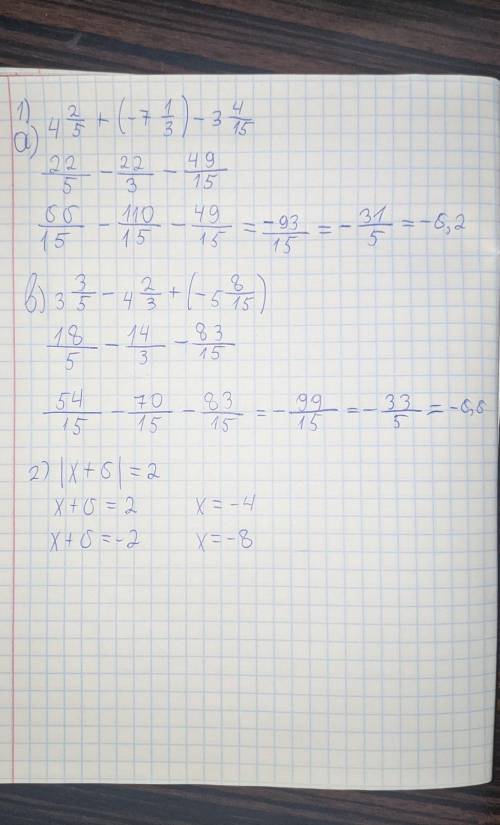 1)
а) 4 2/5 + (-7 1/3) - 3 4/15
22/5 - 22/3 - 49/15
66/15 - 110/15 - 49/15 = -93/15 = -31/5 = -6,2
в) 3 3/5 - 4 2/3 + (-5 8/15)
18/5 - 14/3 - 83/15
54/15 - 70/15 - 83/15 = -99/15 = -33/5 = -6,6
2) |x+6| = 2
x+6 = 2 x = -4
x+6 = -2 x = -8